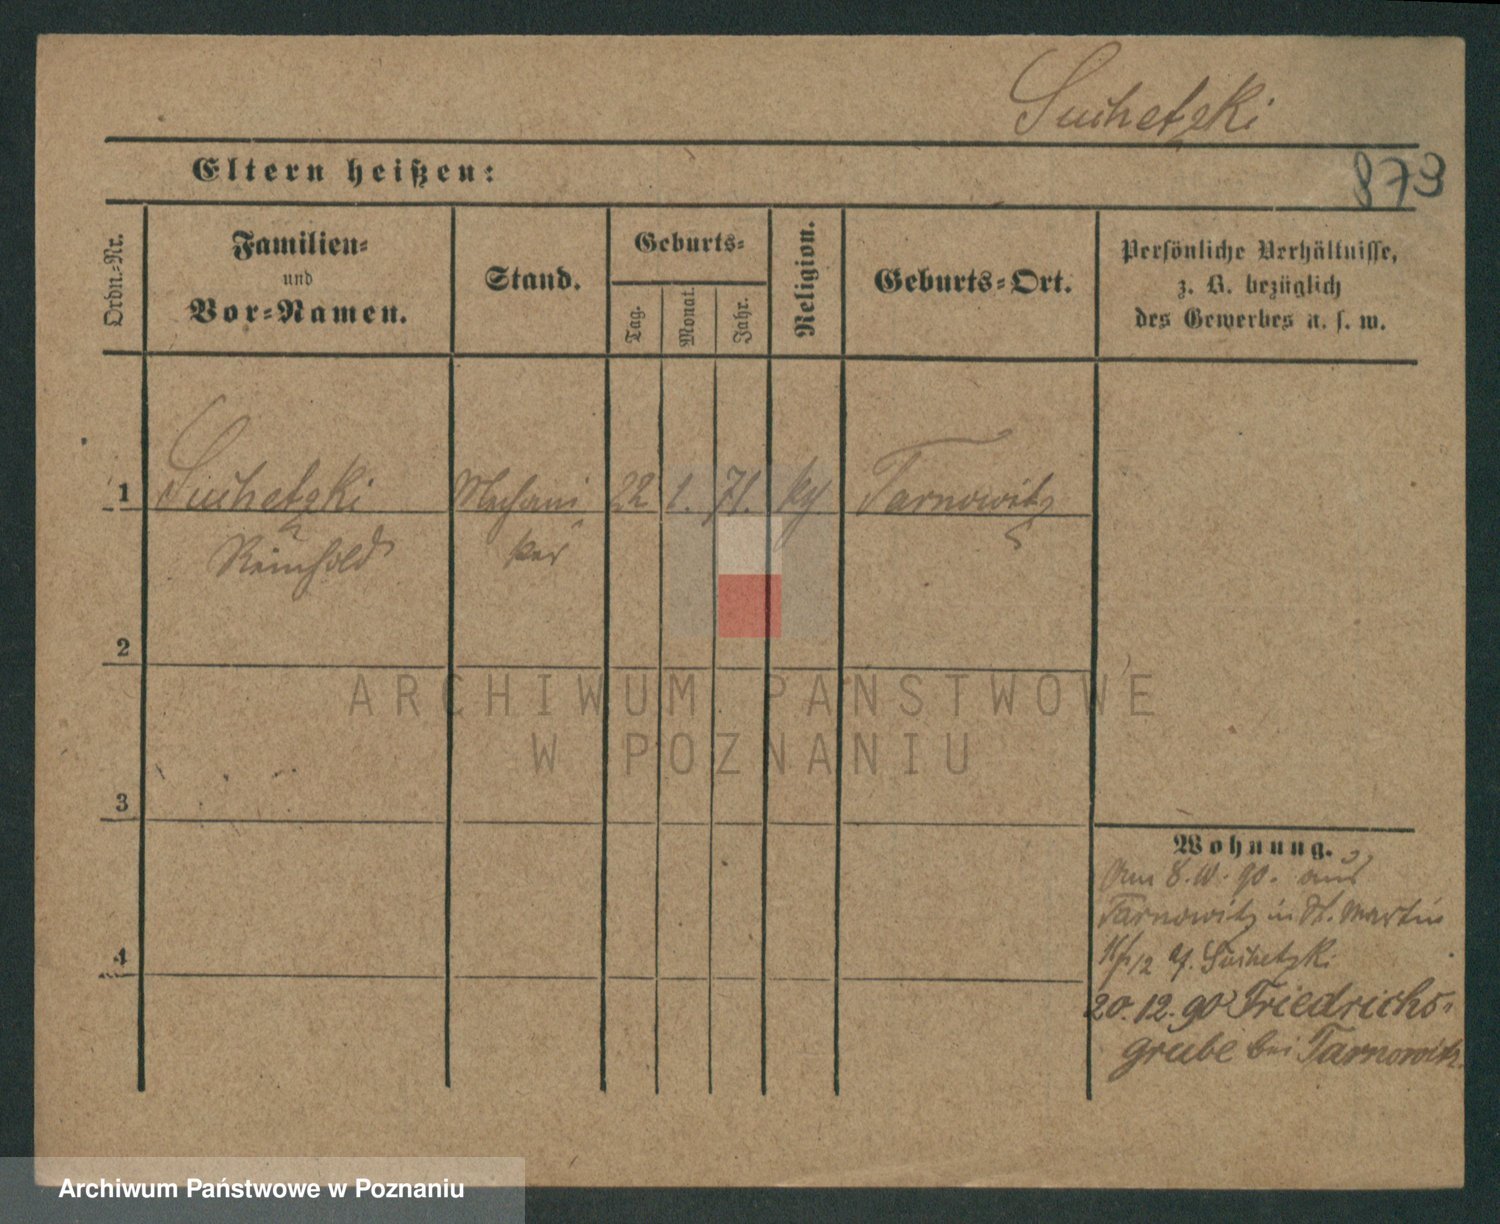 Suchetzki
Eltern heißen:
873
Ordn.-Nr.
Familien-
und
Vor-Namen.
Stand.
Geburts-
Tag.
Monat.
Jahr.
Religion.
Geburts-Ort.
Persönliche Verhältnisse,
z. B. bezüglich
des Gewerbes u. s. w.
1 Suchetzki Mechani 22 1. 71. Tarnowitz
Reinhold ker
2
ARCHIWUM PAŃSTWOWE
W POZNANIU
3
Wohnung.
Am 8.10.90. aus
Tarnowitz in St. Martin
Suchetzki
4
20.12.90 Friedrichs-
grube bei Tarnowitz.
Archiwum Państwowe w Poznaniu